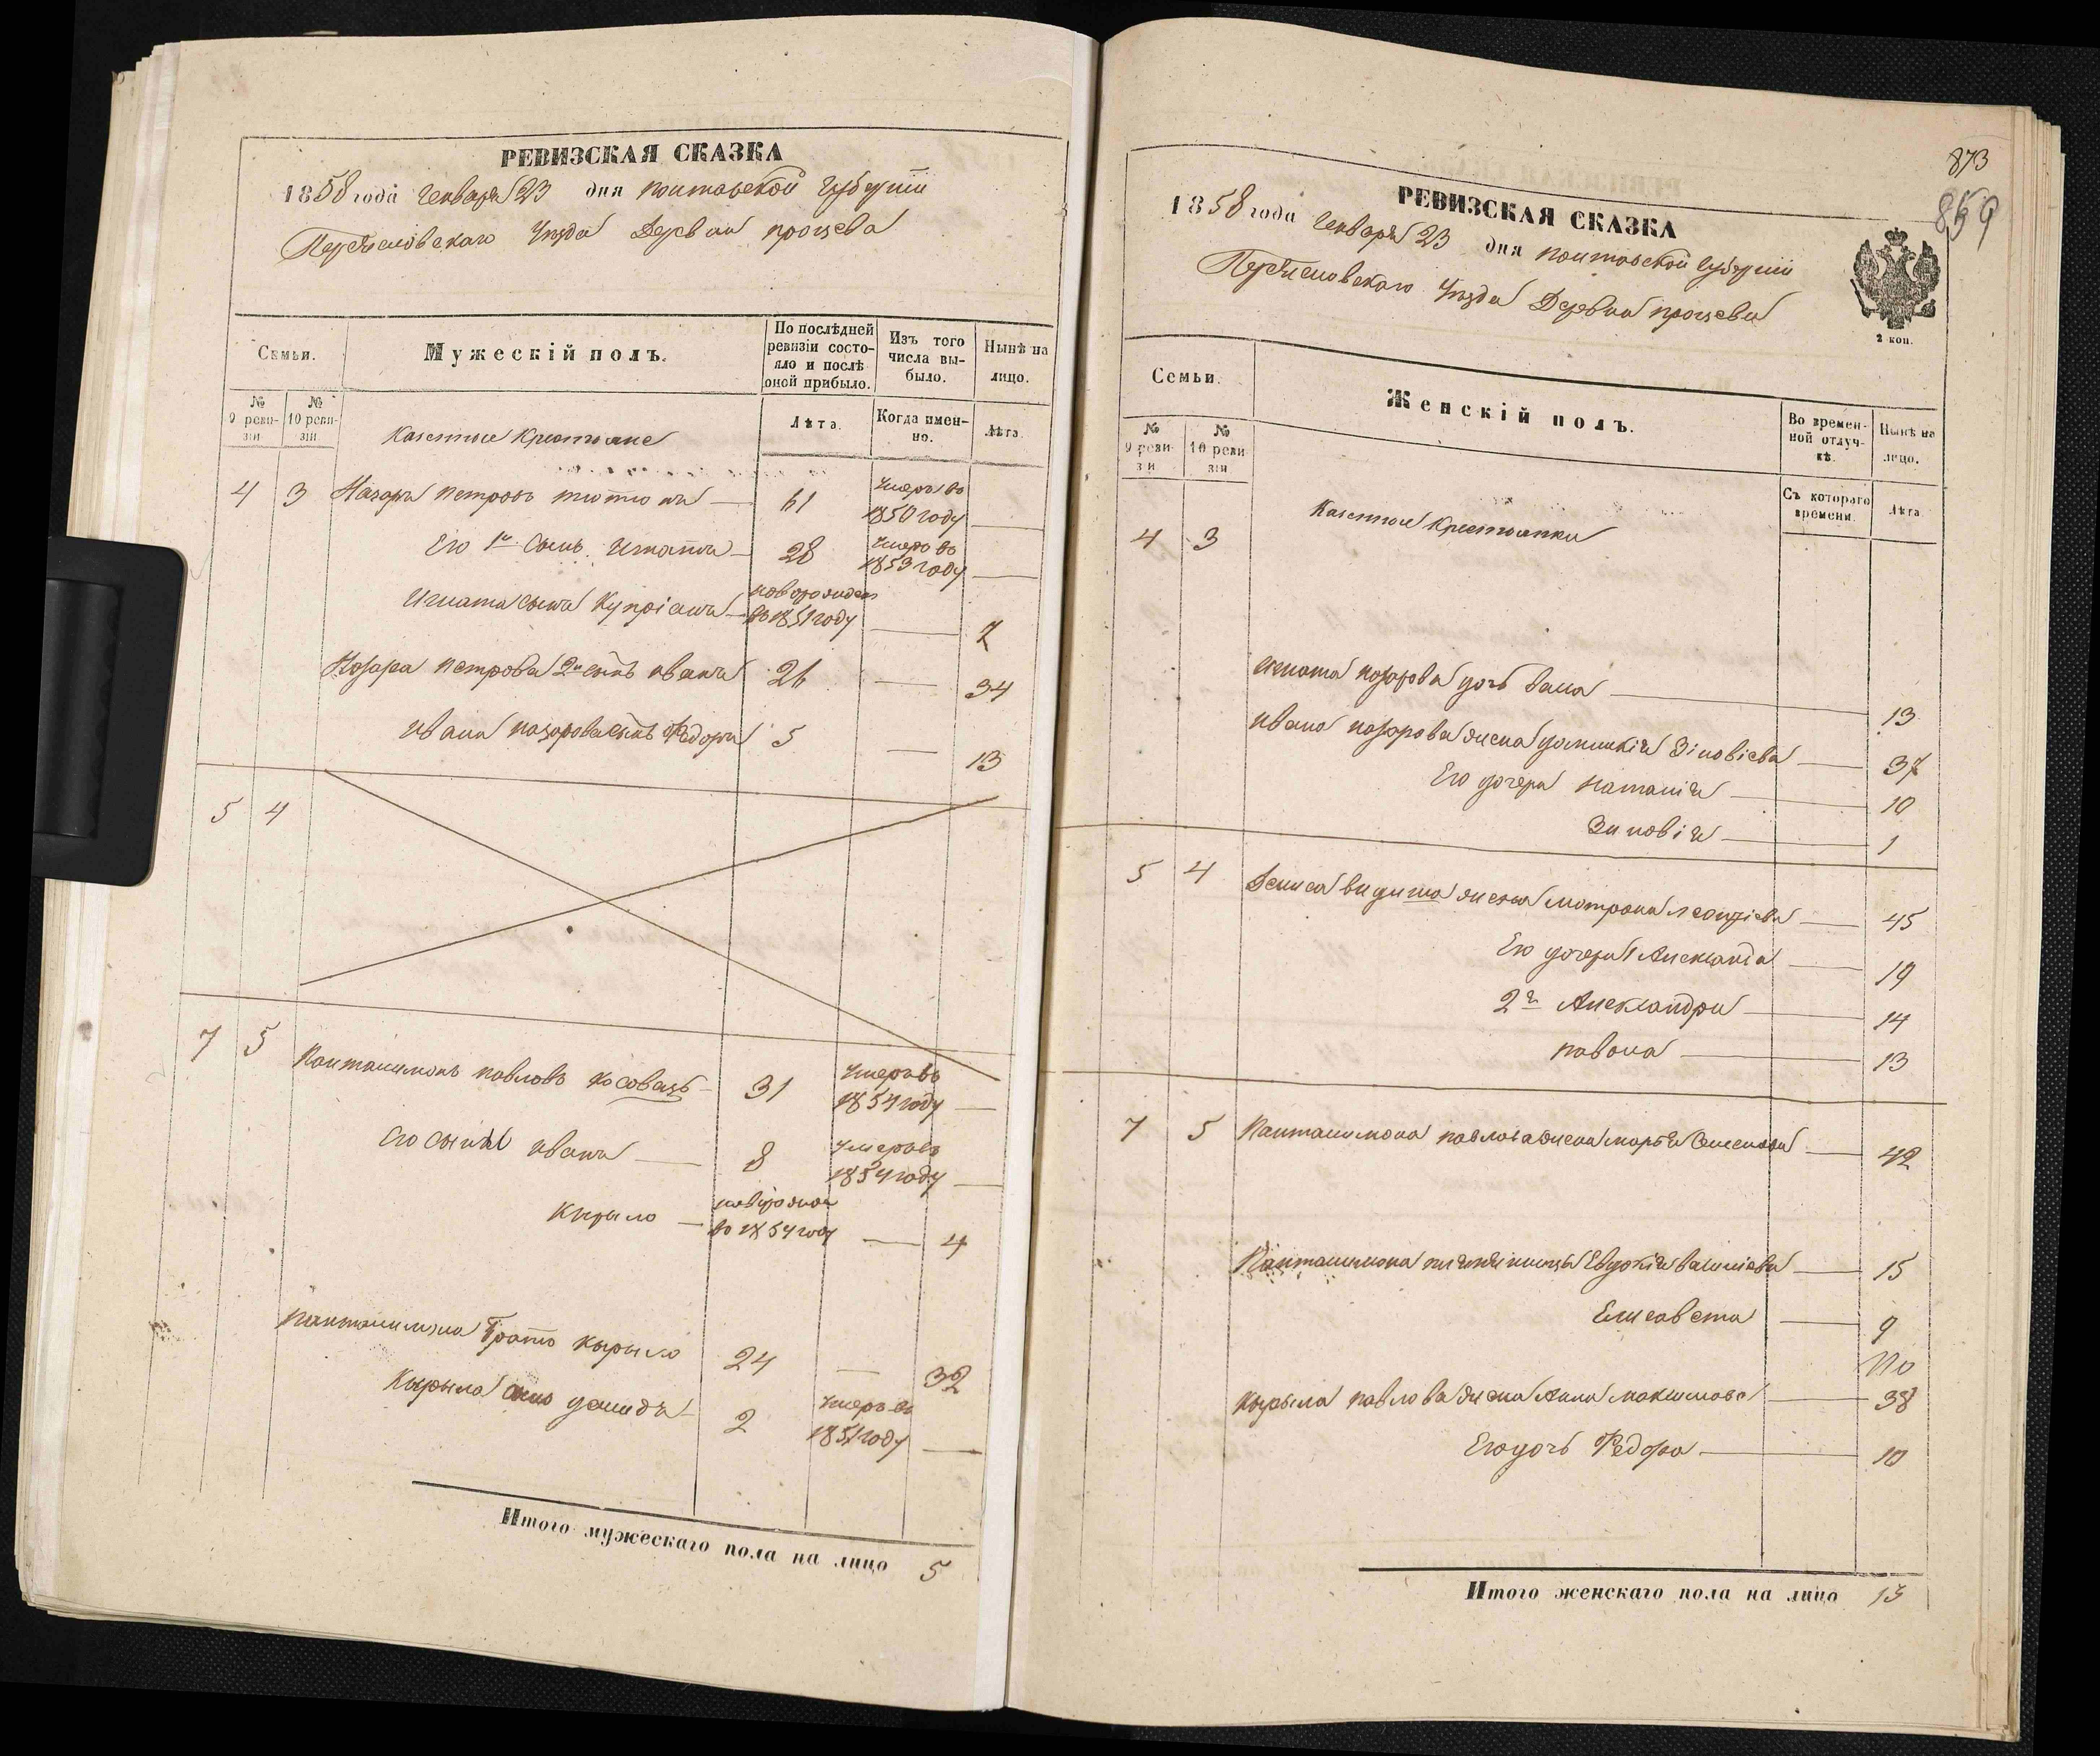 РЕВИЗСКАЯ СКАЗКА
1858 года Генваря 23 дня Полтавской Губернии
Переясловскаго Уезда Деревни Процева
Семьи.
Мужескій полъ.
По послѣдней ревизіи состояло и послѣ оной прибыло.
Изъ того числа выбыло.
Нынѣ на лицо.
№ 9 ревизіи
№ 10 ревизіи
Казенные Крестьяне
Лѣта.
Когда именно.
Лѣта
4 3 Назаръ Петровъ 61 Умеръ въ 1850 году —
Его 1й Сынъ Игнатъ — 28 Умеръ въ 1853 году —
Игната Сынъ Купріянъ — новорожден въ 1851 году — 7
Назара Петрова 2й сынъ Иванъ 26 — 34
Ивана Назарова сынъ Федоръ 5 — 13
5 4
7 5 Панталимонъ Павловъ Косовецъ — 31 Умеръ въ 1854 году —
Его Сыны Иванъ — 8 Умеръ въ 1854 году —
Кирыло — новорожден въ 1854 году — 4
Панталимона братъ Кырыло 24 — 32
Кырыла сынъ Демидъ — 2 Умеръ въ 1851 году —
Итого мужескаго пола на лицо 5
873
859
РЕВИЗСКАЯ СКАЗКА
1858 года Генваря 23 дня Полтавской Губернии
Переясловскаго Уезда Деревни Процева
2 коп.
Семьи.
Женскій полъ.
Во временной отлучкѣ.
Нынѣ на лицо.
№ 9 ревизіи
№ 10 ревизіи
Съ котораго времени.
Лѣта
Казенные Крестьянки
4 3
Игната Назарова дочь — 13
Ивана Назарова жена Домникія Зіновіева — 37
Его дочери Наталія — 10
Зиновія — 1
5 4 Дениса жена Мотрона Леонтіева — 45
Его дочери 1 Александра — 19
2я Александра — 14
Павола — 13
7 5 Панталимона Павлова жена Марья Семенова — 42
Панталимона племяницы Евдокія Василіева — 15
Елисавета — 9
Кырыла Павлова жена Анна Максимова — 38
Его дочь Федора — 10
Итого женскаго пола на лицо 13